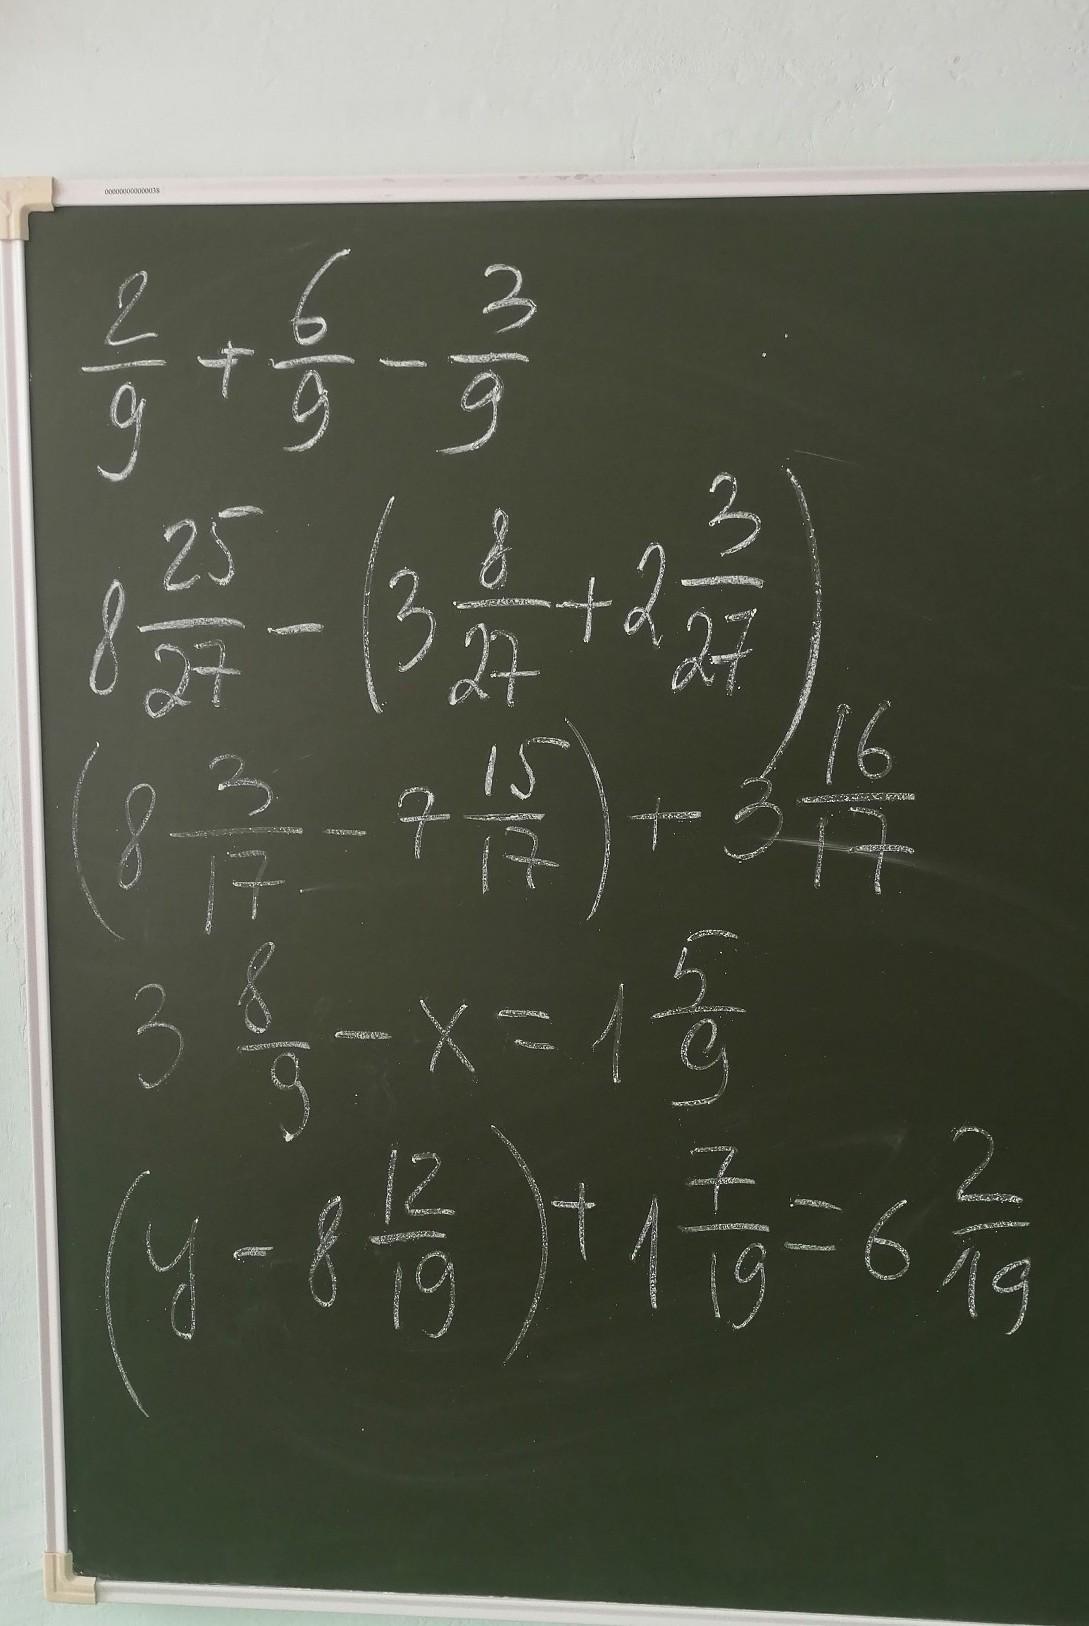 000000000000038
2/9 + 6/9 - 3/9
8 25/27 - (3 8/27 + 2 3/27)
(8 3/17 - 7 15/17) + 3 16/17
3 8/9 - x = 1 5/9
(y - 8 12/19) + 1 7/19 = 6 2/19